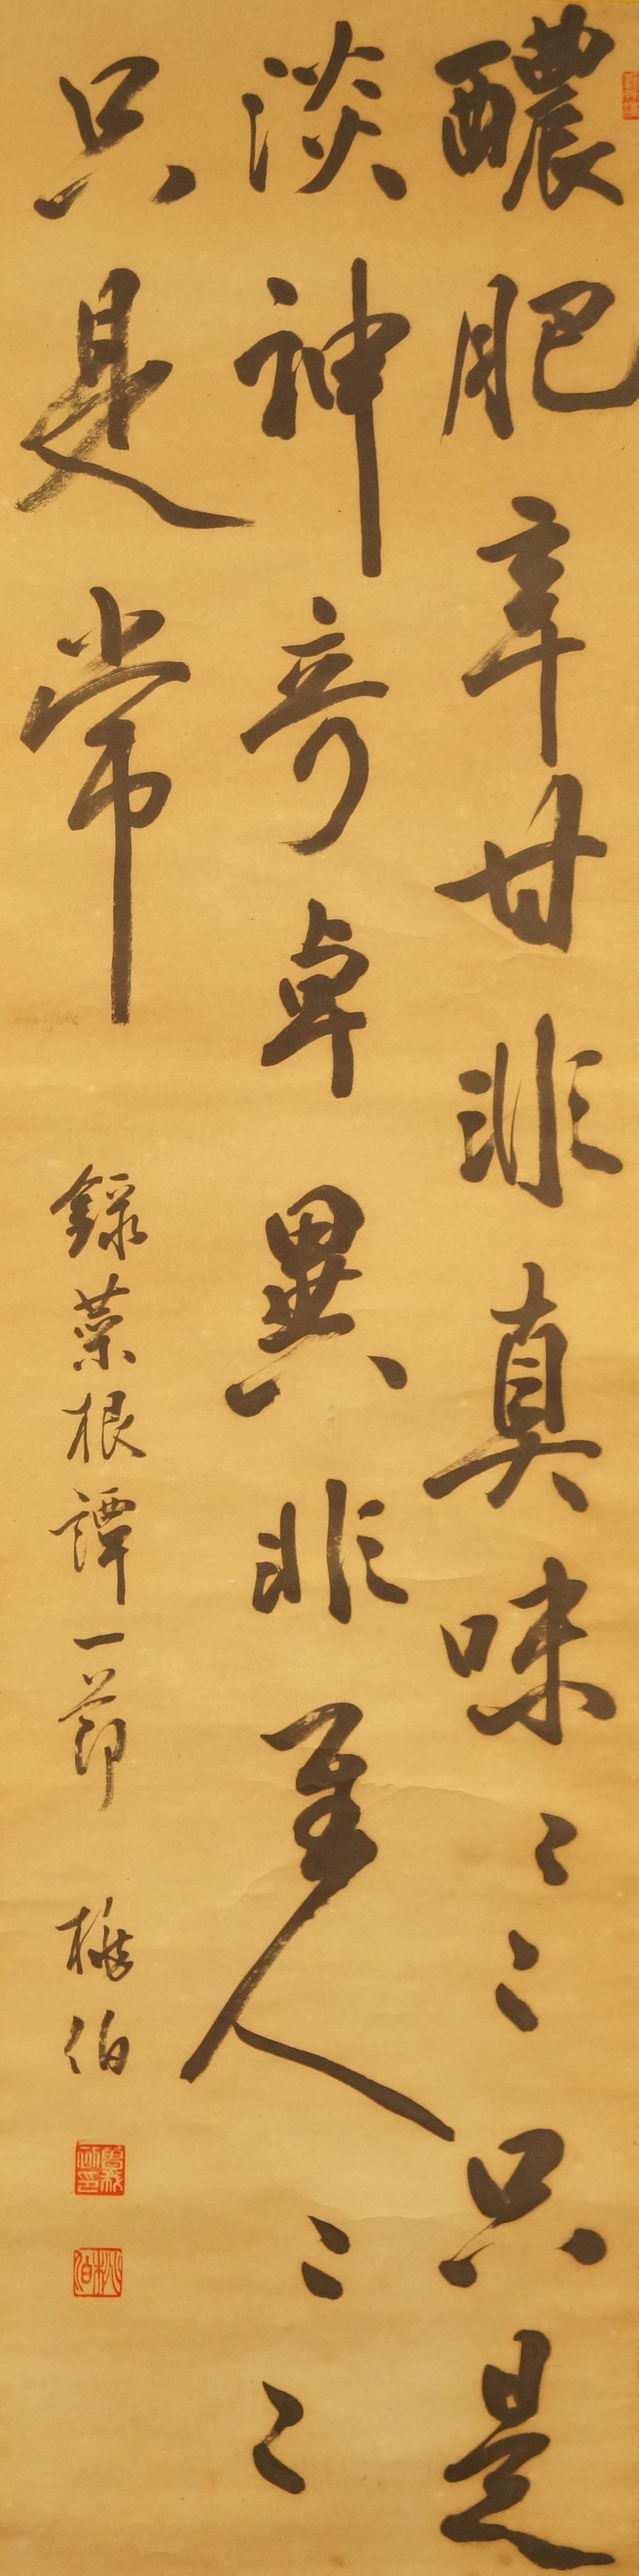 醲肥辛甘非真味〻〻只是
淡神奇卓異非至人〻〻
只是常
錄菜根譚一節
桃伯